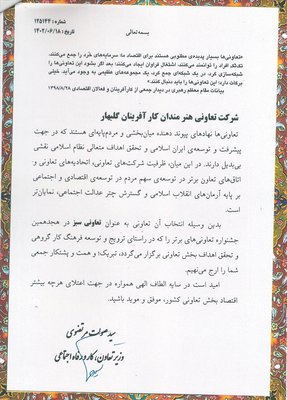 بسمه‌تعالی
شماره: ۱۲۵۱۴۴
تاریخ: ۱۴۰۲/۰۶/۱۸
«تعاونی‌ها بسیار پدیده‌ی مطلوبی هستند برای اقتصاد ما؛ سرمایه‌های خرد را جمع می‌کنند،
تک‌تک افراد را توانمند می‌کنند، اشتغال فراوان ایجاد می‌کنند؛ بعد اگر بشود این تعاونی‌ها را
شبکه‌سازی کرد، در یک شبکه‌ای جمع کرد، یک مجموعه‌های عظیمی به وجود می‌آید، خیلی
برکات دارد؛ این تعاونی‌ها را باید دنبال کنند.»
بیانات مقام معظم رهبری در دیدار جمعی از کارآفرینان و فعالان اقتصادی ۱۳۹۸/۸/۲۸
شرکت تعاونی هنر مندان کار آفرینان گلبهار
تعاونی‌ها نهادهای پیوند دهنده میان‌بخشی و مردم‌پایه‌ای هستند که در جهت
پیشرفت و توسعه‌ی ایران اسلامی و تحقق اهداف متعالی نظام اسلامی نقشی
بی‌بدیل دارند. در این میان، ظرفیت شرکت‌های تعاونی، اتحادیه‌های تعاونی و
اتاق‌های تعاون برتر در توسعه‌ی سهم مردم در توسعه‌ی اقتصادی و اجتماعی
بر پایه آرمان‌های انقلاب اسلامی و گسترش چتر عدالت اجتماعی، نمایان‌تر
است.
بدین وسیله انتخاب آن تعاونی به عنوان تعاونی سبز در هجدهمین
جشنواره تعاونی‌های برتر را که در راستای ترویج و توسعه فرهنگ کار گروهی
و تحقق اهداف بخش تعاونی برگزار می‌گردد، تبریک؛ و همت و پشتکار جمعی
شما را ارج می‌نهیم.
امید است در سایه الطاف الهی همواره در جهت اعتلای هرچه بیشتر
اقتصاد بخش تعاونی کشور، موفق و موید باشید.
سید صولت مرتضوی
وزیر تعاون، کار و رفاه اجتماعی